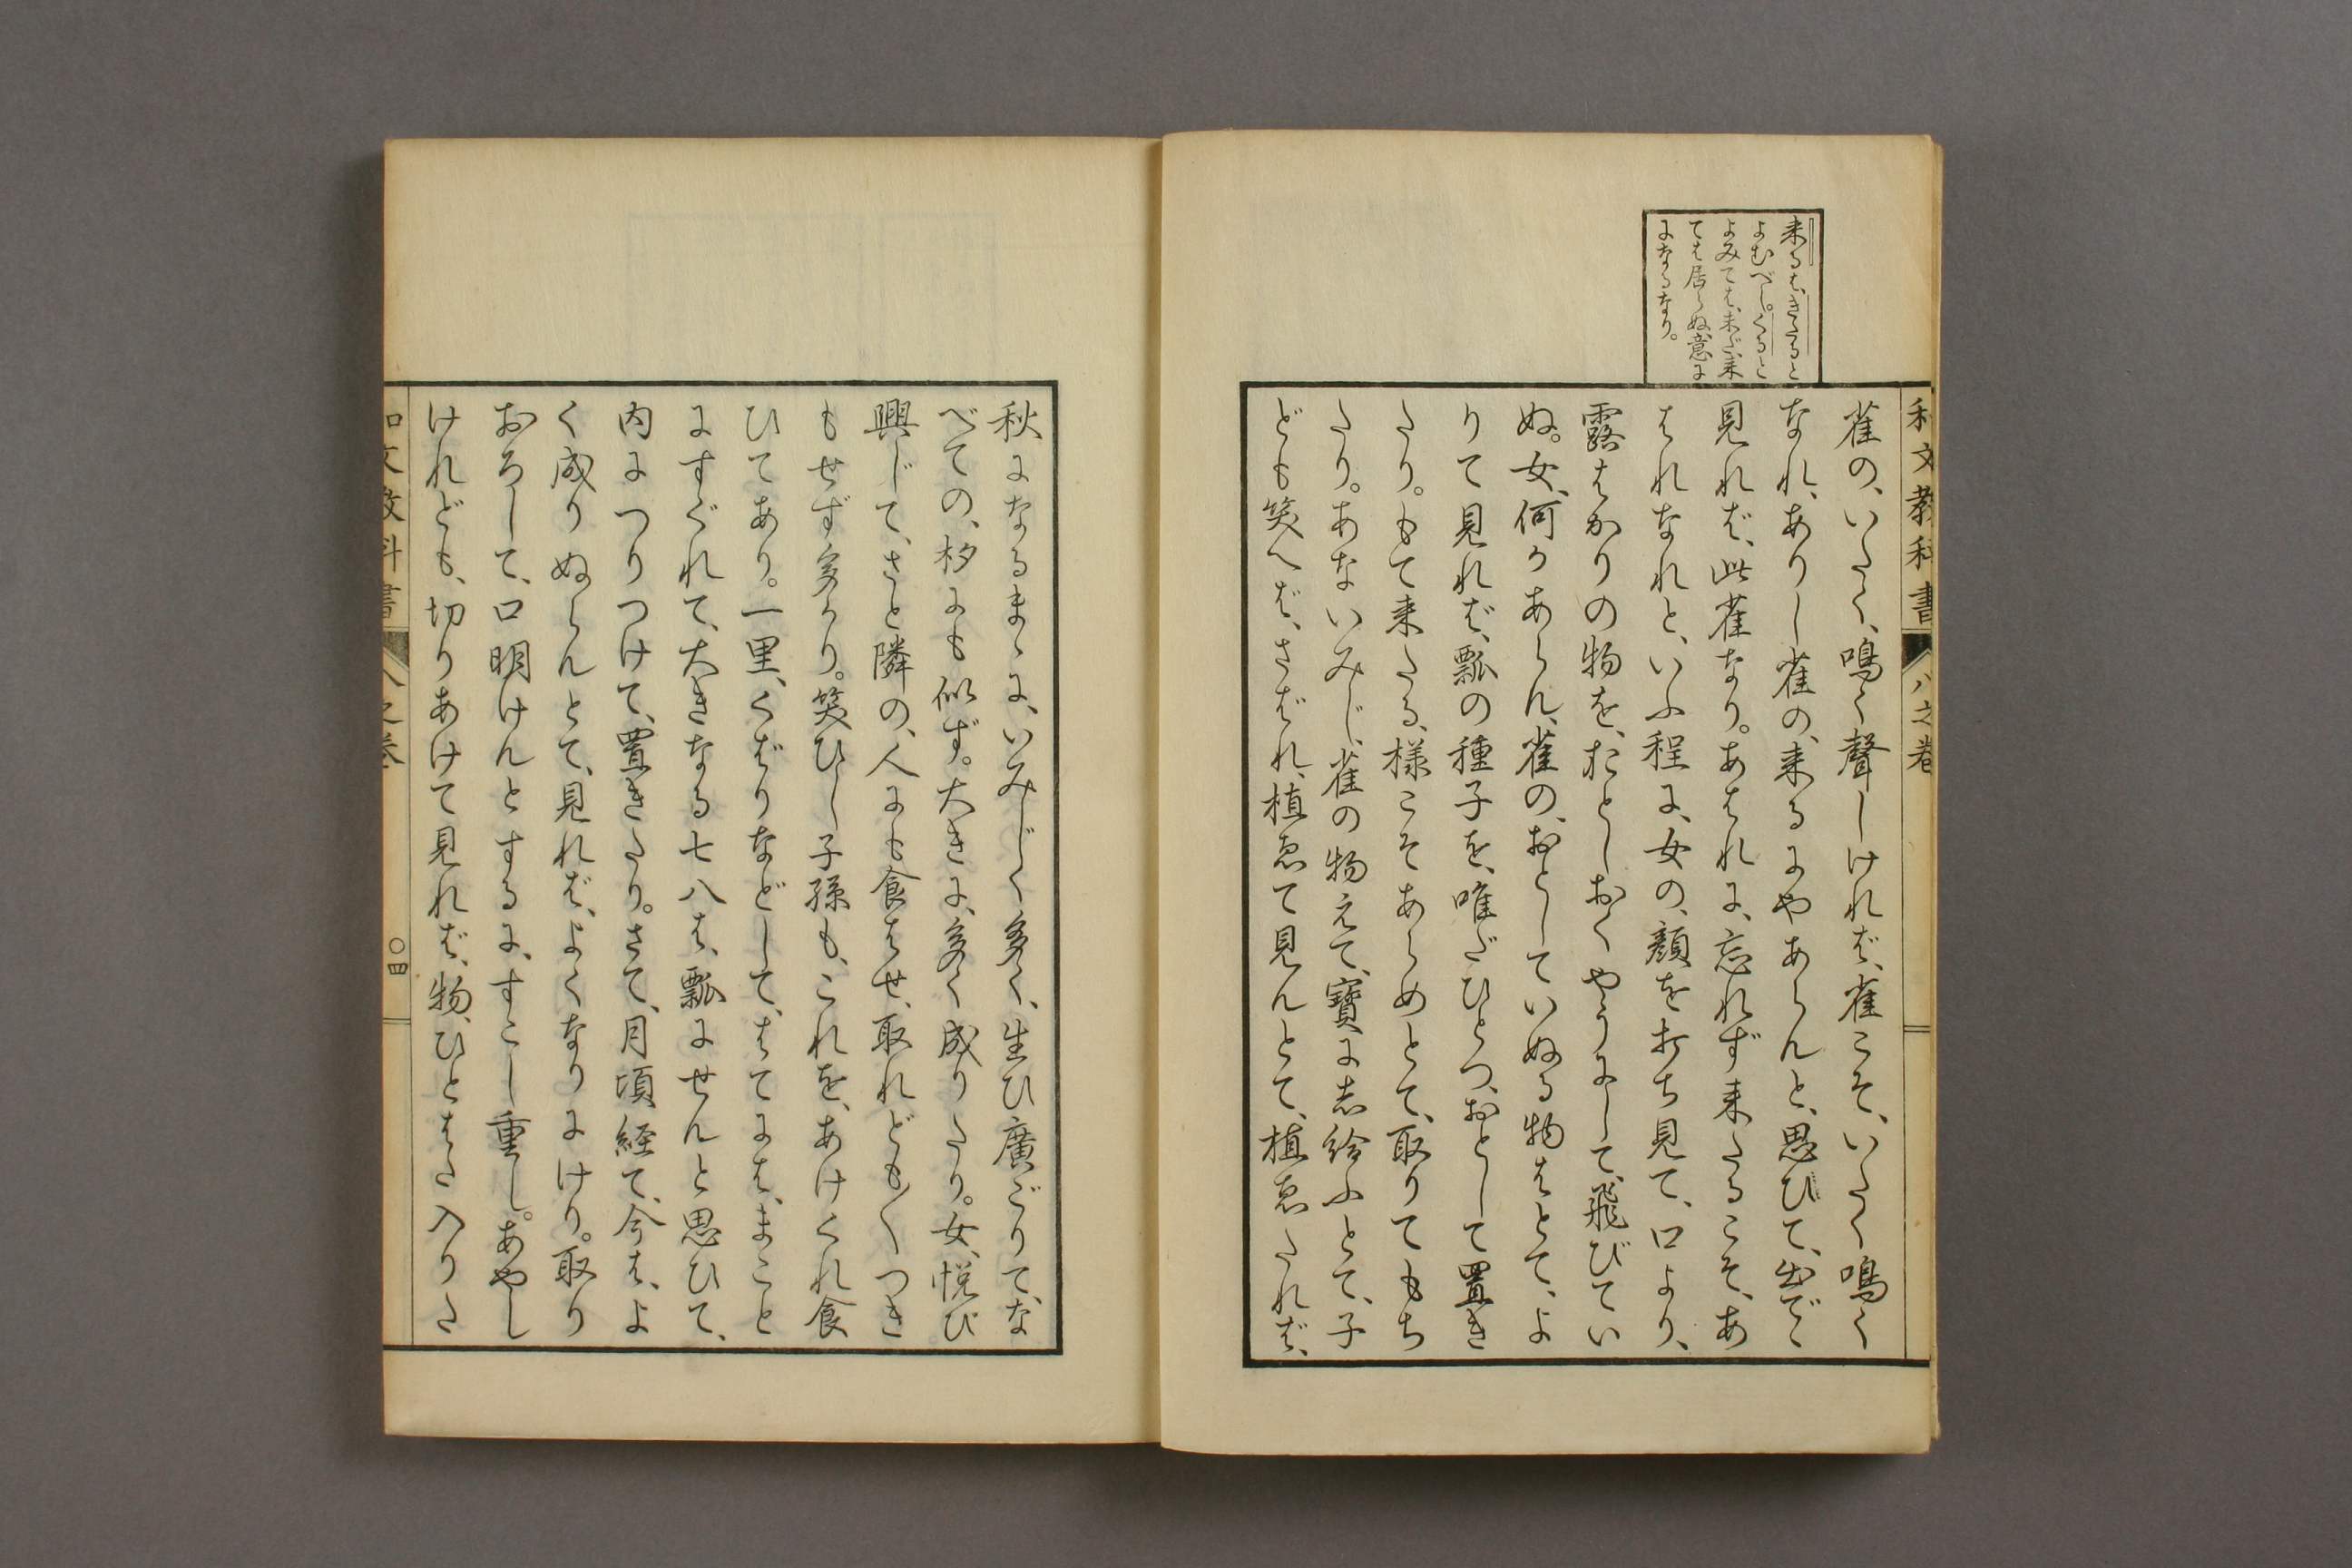 来るは、きたると
よむべし。くると
よみては、未だ来
ては居らぬ意に
になるなり。
和文教科書 八之巻
雀の、いたく、鳴く聲しければ、雀こそ、いたく鳴く
なれ、ありし雀の、来るにやあらんと、思ひて、出でゝ
見れば、此雀なり。あはれに、忘れず来たるこそ、あ
はれなれと、いふ程に、女の、顔を打ち見て、口より、
露ばかりの物を、おとしおくやうにして、飛びてい
ぬ。女、何かあらん、雀の、おとしていぬる物はとて、よ
りて見れば、瓢の種子を、唯だひとつ、おとして置き
たり。もて来たる、様こそあらめとて、取りてもち
たり。あないみじ、雀の物えて、寶にし給ふとて、子
ども笑へば、さばれ、植ゑて見んとて、植ゑたれば、
秋になるまゝに、いみじく多く、生ひ廣ごりて、な
べての、杓にも似ず。大きに、多く成りたり。女、悦び
興じて、さと隣の、人にも食はせ、取れども〳〵つき
もせず多かり。笑ひし子孫も、これを、あけくれ食
ひてあり。一里、くばりなどして、はてには、まこと
にすぐれて、大きなる七八は、瓢にせんと思ひて、
内につりつけて、置きたり。さて、月頃経て、今は、よ
く成りぬらんとて、見れば、よくなりにけり。取り
おろして、口明けんとするに、すこし重し。あやし
けれども、切りあけて見れば、物、ひとはた入りた
和文教科書 八之巻 〇四